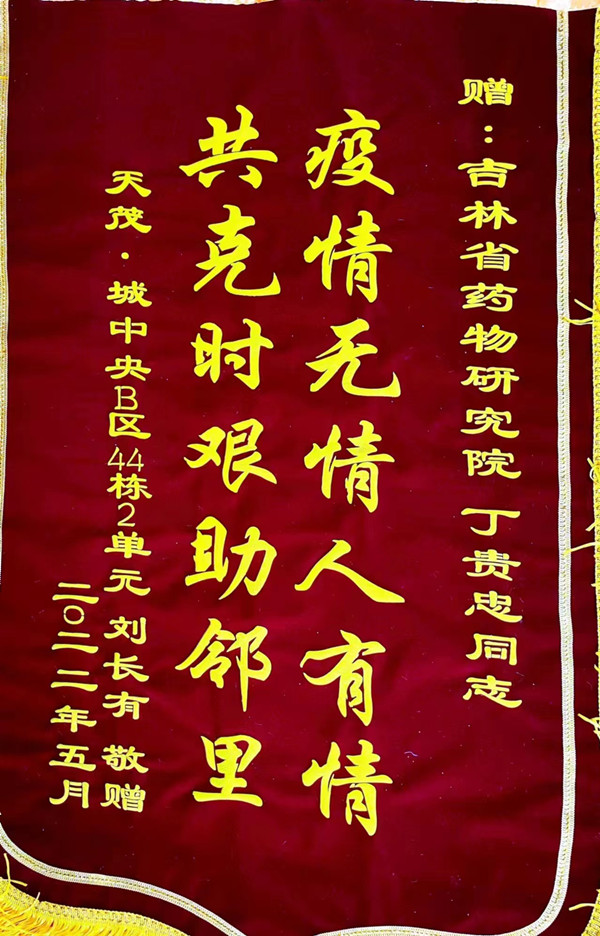 赠：吉林省药物研究院 丁贵忠同志
疫情无情人有情
共克时艰助邻里
天茂·城中央B区44栋2单元 刘长有 敬赠
二〇二二年五月